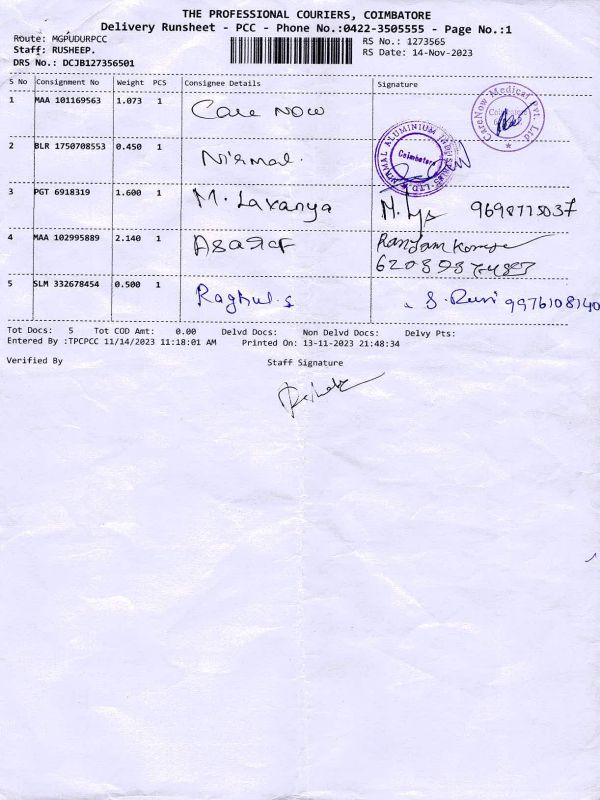 THE PROFESSIONAL COURIERS, COIMBATORE
Delivery Runsheet - PCC - Phone No.:0422-3505555 - Page No.:1
Route: MGPUDURPCC
Staff: RUSHEEP.
DRS No.: DCJB127356501
RS No.: 1273565
RS Date: 14-Nov-2023
S No Consignment No Weight PCS Consignee Details Signature
1 MAA 101169563 1.073 1 Care Now
CareNow Medical Pvt. Ltd
Coimbatore
2 BLR 1750708553 0.450 1 Nirmal.
ALUMINIUM
Coimbatore
3 PGT 6918319 1.600 1 M. Laxanya
4 MAA 102995889 2.140 1
5 SLM 332678454 0.500 1 Raghul.s 9976108140
Tot Docs: 5 Tot COD Amt: 0.00 Delvd Docs: Non Delvd Docs: Delvy Pts:
Entered By :TPCPCC 11/14/2023 11:18:01 AM Printed On: 13-11-2023 21:48:34
Verified By Staff Signature